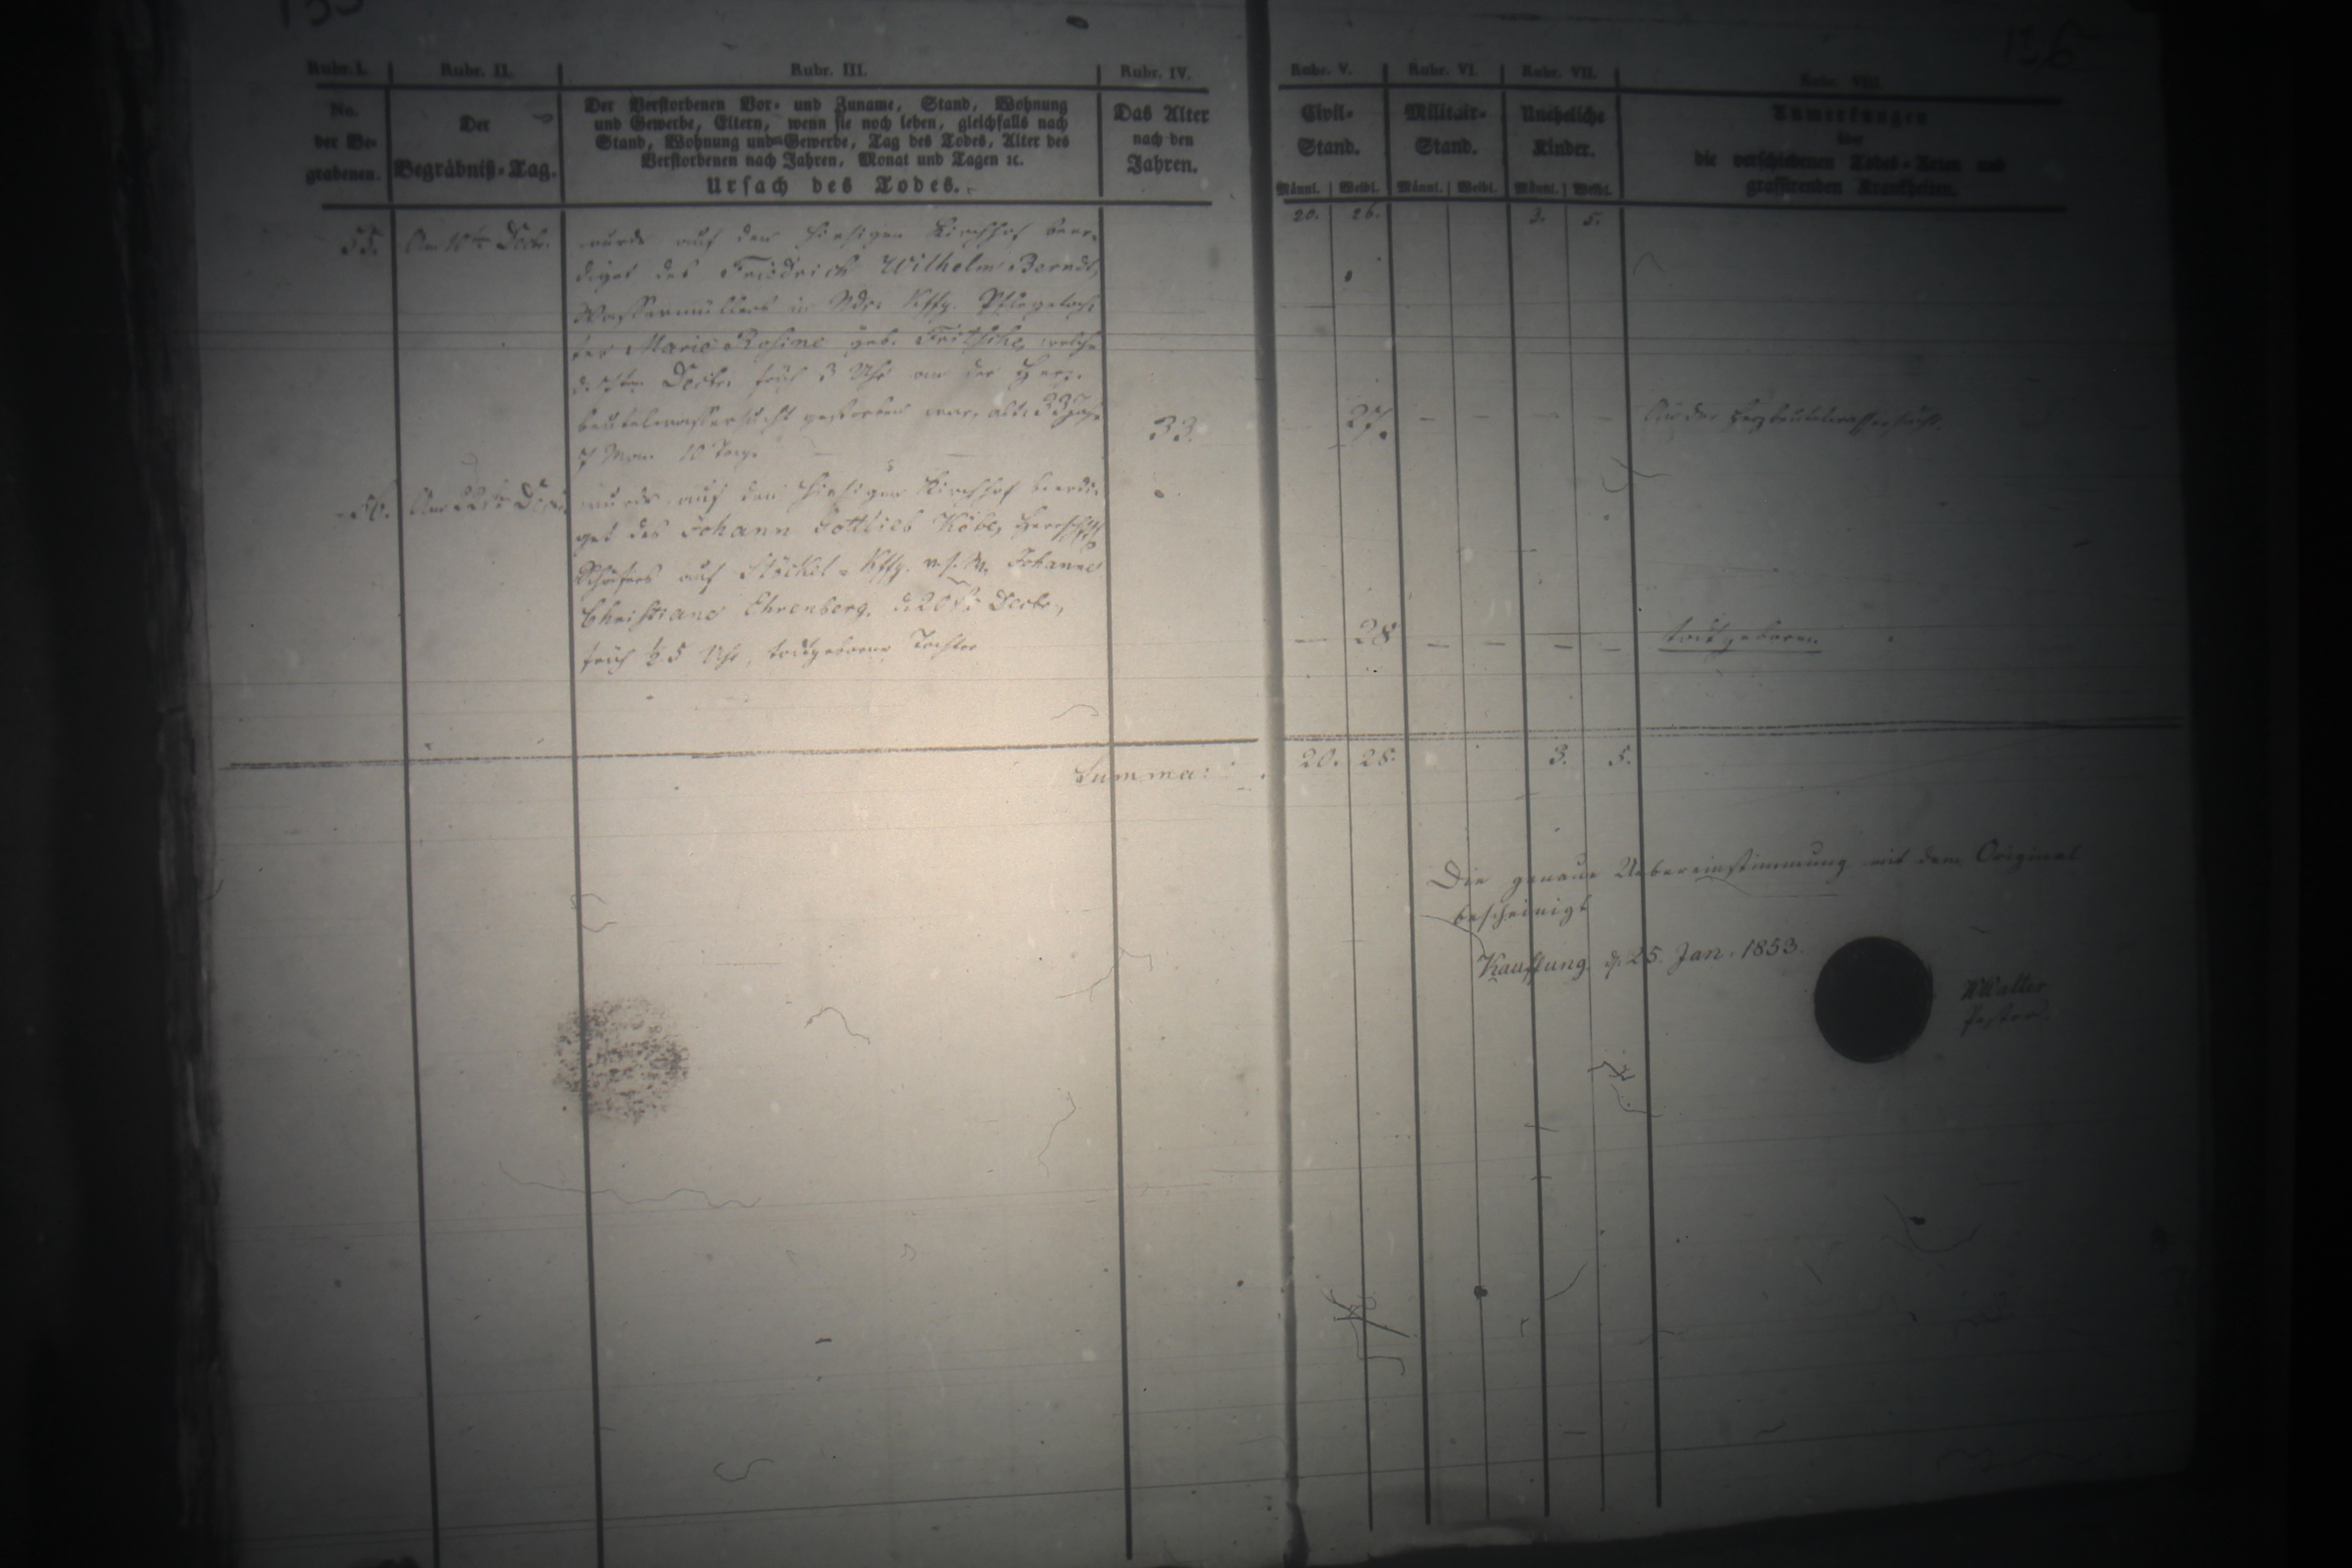 136
Rubr. I. Rubr. II. Rubr. III. Rubr. IV. Rubr. V. Rubr. VI. Rubr. VII. Rubr. VIII.
No.
der Be-
grabenen.
Der
Begräbniß-Tag.
Der Verstorbenen Vor- und Zuname, Stand, Wohnung
und Gewerbe, Eltern, wenn sie noch leben, gleichfalls nach
Stand, Wohnung und Gewerbe, Tag des Todes, Alter des
Verstorbenen nach Jahren, Monat und Tagen ꝛc.
Ursach des Todes.
Das Alter
nach den
Jahren.
Civil-
Stand.
Männl. Weibl.
Militair-
Stand.
Männl. Weibl.
Uneheliche
Kinder.
Männl. Weibl.
Anmerkungen
über
die verschiedenen Todes-Arten und
grassirenden Krankheiten.
20. 26. 3. 5.
55. Am 10ten Decbr.
wurde auf den hiesigen Kirchhof beer-
diget des Friedrich Wilhelm Berndt,
Wassermüllers in Ndr. Kffg. Pflegetoch-
ter Marie Rosine geb. Fritsche, welche
d. 7ten Decbr. früh 3 Uhr an der Herz-
beutelwassersucht gestorben war, alt: 33 Jahr
7 Mon. 10 Tage
33. 27. – – – – An der Herzbeutelwassersucht.
56. Am 22ten Decbr.
wurde auf den hiesigen Kirchhof beerdi-
get des Johann Gottlieb Köbe, herrschftl.
Schäfers auf Stöckel-Kffg. Johanne
Christiane Ehrenberg, d. 20ten Decbr.,
früh ½ 5 Uhr, todtgeborne Tochter
– 28 – – – – todtgeboren.
Summa: 20. 28. 3. 5.
Die genaue Uebereinstimmung mit dem Original
bescheinigt
Kauffung, d. 25. Jan. 1853.
Pastor.